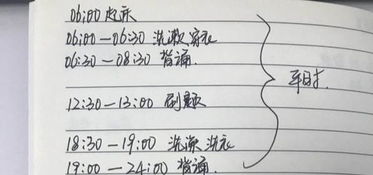 06:00 起床
06:00—06:30 洗漱 穿衣
06:30—08:30 背诵.
12:30—13:00 刷题
18:30—19:00 洗澡 洗衣
19:00—24:00 背诵.
平时